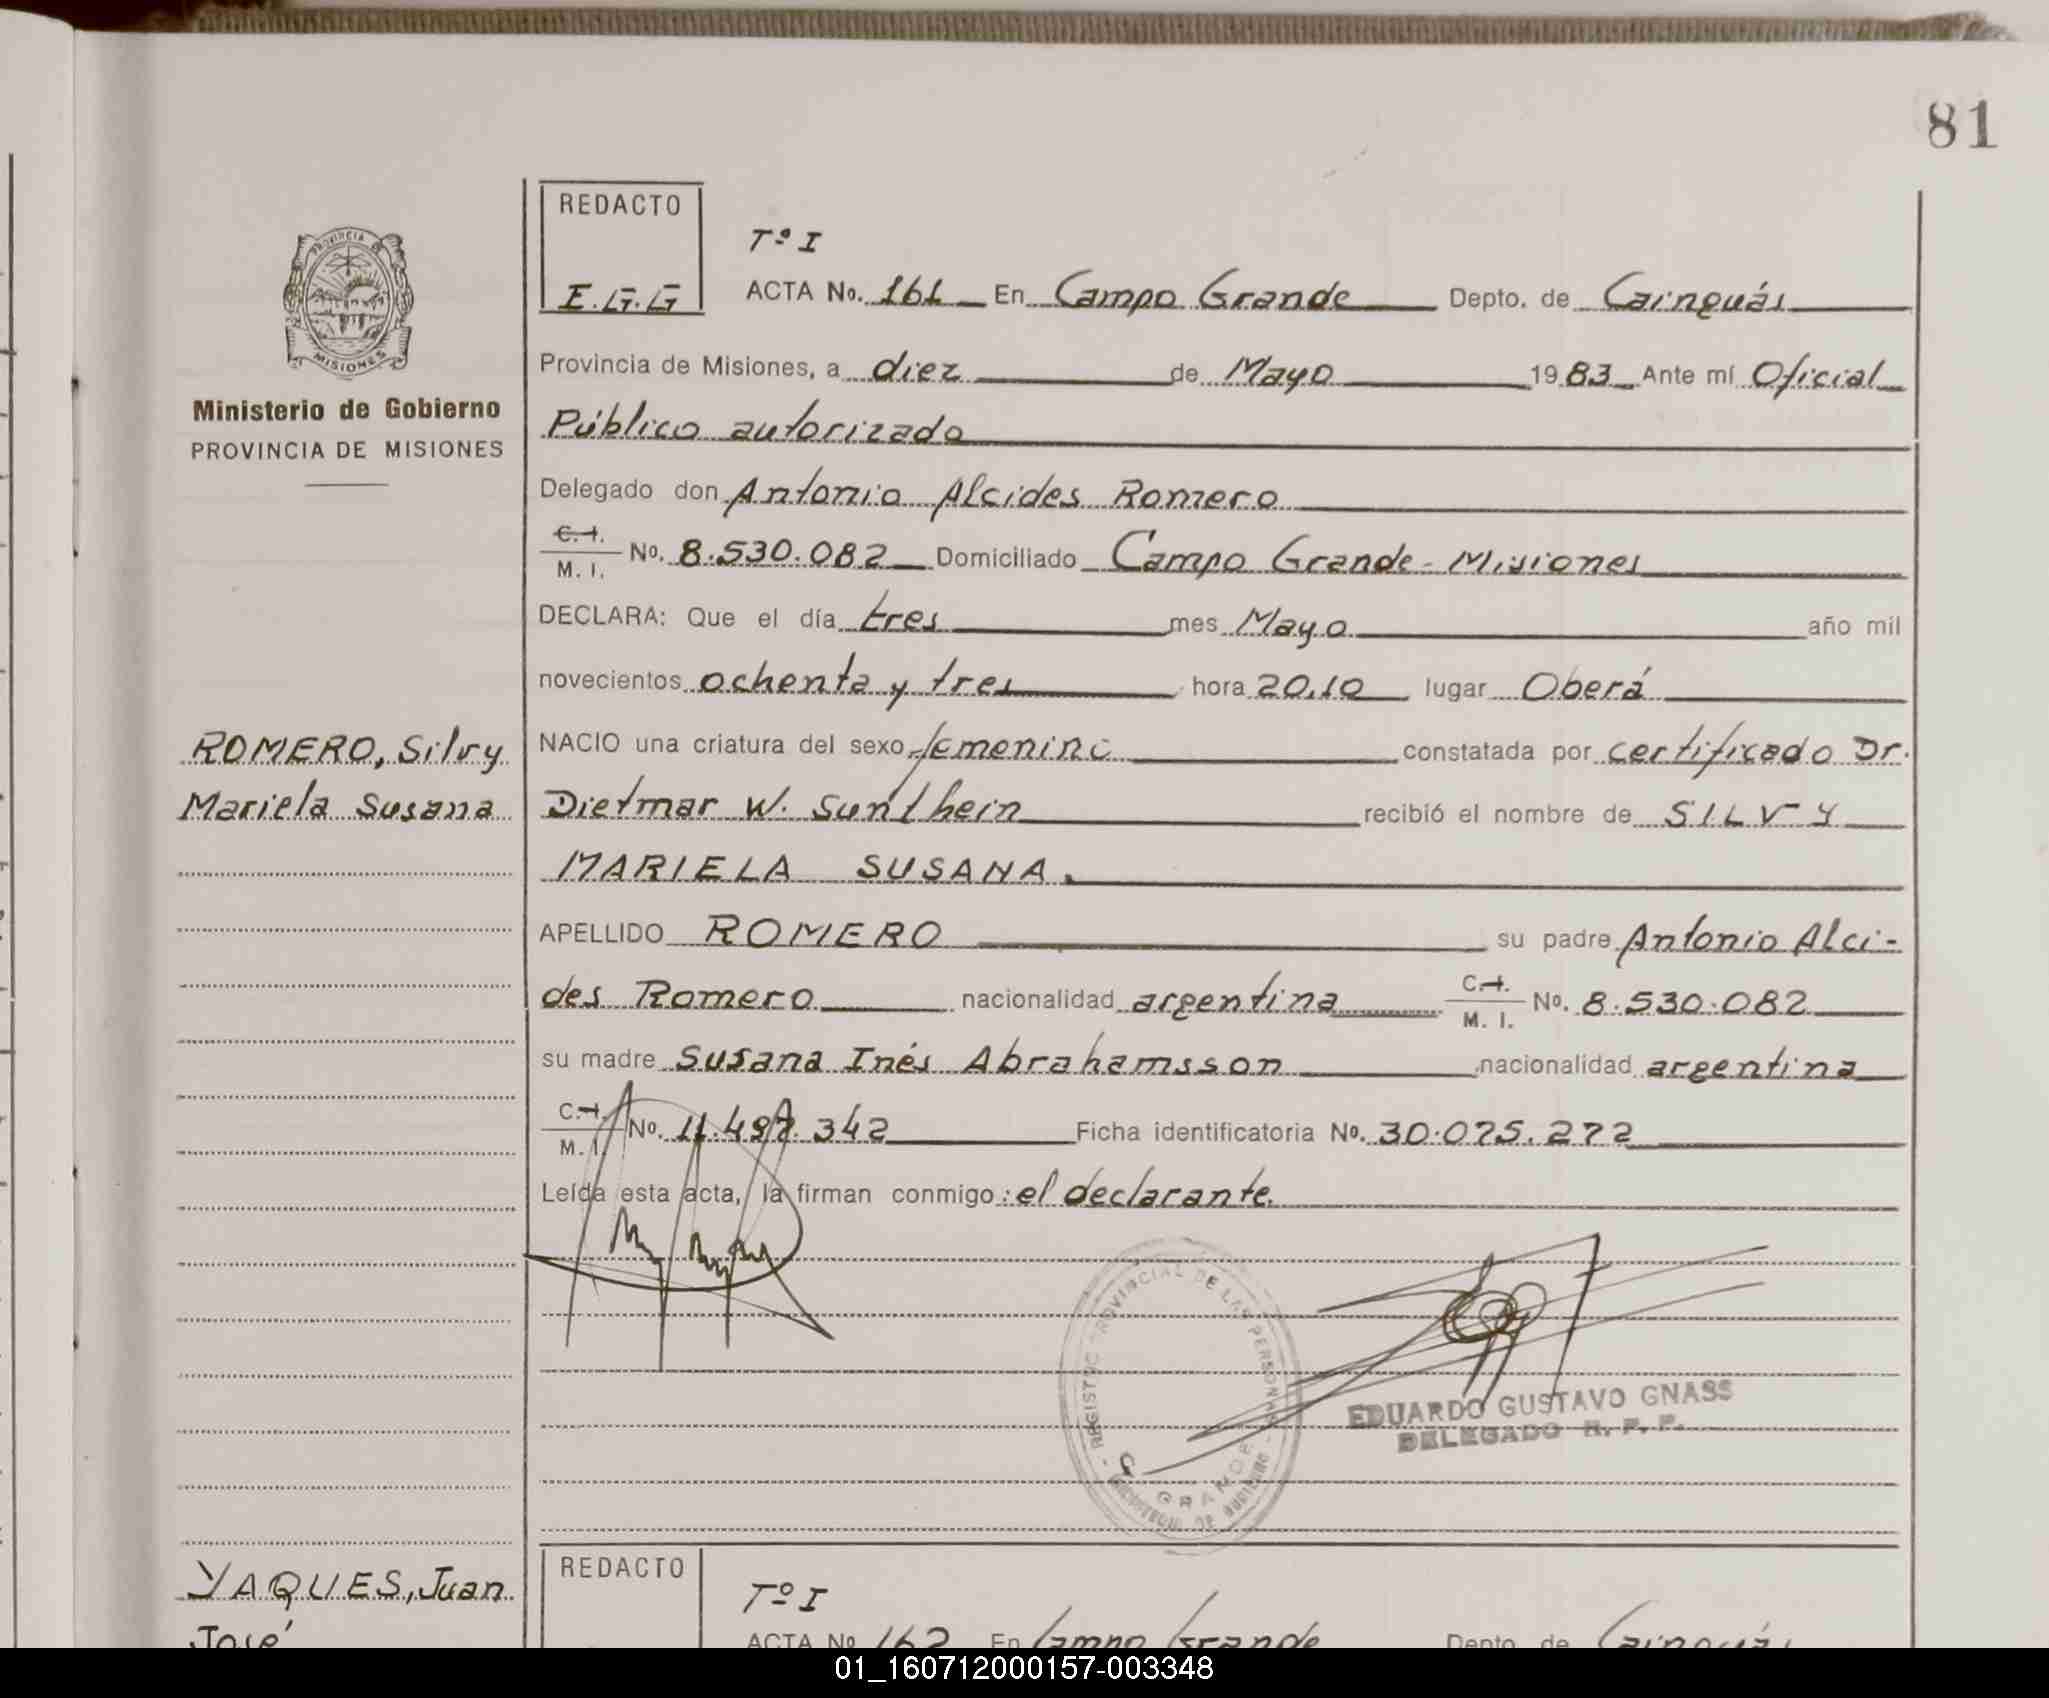 81
REDACTO
Tº I
E.G.G
ACTA No. 161 En Campo Grande Depto. de Cainguás
Provincia de Misiones, a diez de Mayo 1983 Ante mí Oficial
Ministerio de Gobierno
PROVINCIA DE MISIONES
Público autorizado
Delegado don Antonio Alcides Romero
C.I. M. I. No. 8.530.082 Domiciliado Campo Grande - Misiones
DECLARA: Que el día tres mes Mayo año mil
novecientos ochenta y tres hora 20,10 lugar Oberá
ROMERO, Silvy
Mariela Susana
NACIO una criatura del sexo femenino constatada por certificado Dr.
Dietmar W. Sunthein recibió el nombre de SILVY
MARIELA SUSANA.
APELLIDO ROMERO su padre Antonio Alci-
des Romero nacionalidad argentina C.I. M. I. No. 8.530.082
su madre Susana Inés Abrahamsson nacionalidad argentina
C.I. M. I. No. 11.497.342 Ficha identificatoria No. 30.075.272
Leída esta acta, la firman conmigo: el declarante.
REGISTRO PROVINCIAL DE LAS PERSONAS
GRANDE
MINISTERIO DE GOBIERNO
EDUARDO GUSTAVO GNASS
DELEGADO R. P. P.
YAQUES, Juan
José
REDACTO
Tº I
ACTA No 162 En Campo Grande Depto. de Cainguás
01_160712000157-003348